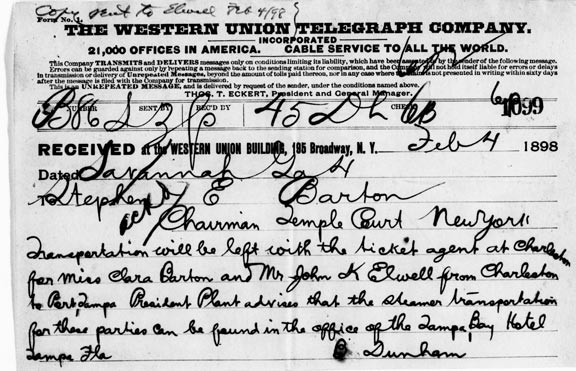 Copy sent to Elwell Feb 4/98
Form No. 1.
THE WESTERN UNION TELEGRAPH COMPANY.
INCORPORATED
21,000 OFFICES IN AMERICA. CABLE SERVICE TO ALL THE WORLD.
This Company TRANSMITS and DELIVERS messages only on conditions limiting its liability, which have been assented to by the sender of the following message.
Errors can be guarded against only by repeating a message back to the sending station for comparison, and the Company will not hold itself liable for errors or delays
in transmission or delivery of Unrepeated Messages, beyond the amount of tolls paid thereon, nor in any case where the claim is not presented in writing within sixty days
after the message is filed with the Company for transmission.
This is an UNREPEATED MESSAGE, and is delivered by request of the sender, under the conditions named above.
THOS. T. ECKERT, President and General Manager.
NUMBER SENT BY REC'D BY CHECK
45 DH
1899
RECEIVED at the WESTERN UNION BUILDING, 195 Broadway, N. Y. Feb 4 1898
Dated Savannah Ga 4
To Stephen E Barton
Chairman Temple Court New York
Transportation will be left with the ticket agent at Charleston
for Miss Clara Barton and Mr John K Elwell from Charleston
to Port Tampa President Plant advises that the steamer transportation
for these parties can be found in the office of the Tampa Bay Hotel
Tampa Fla
B Dunham